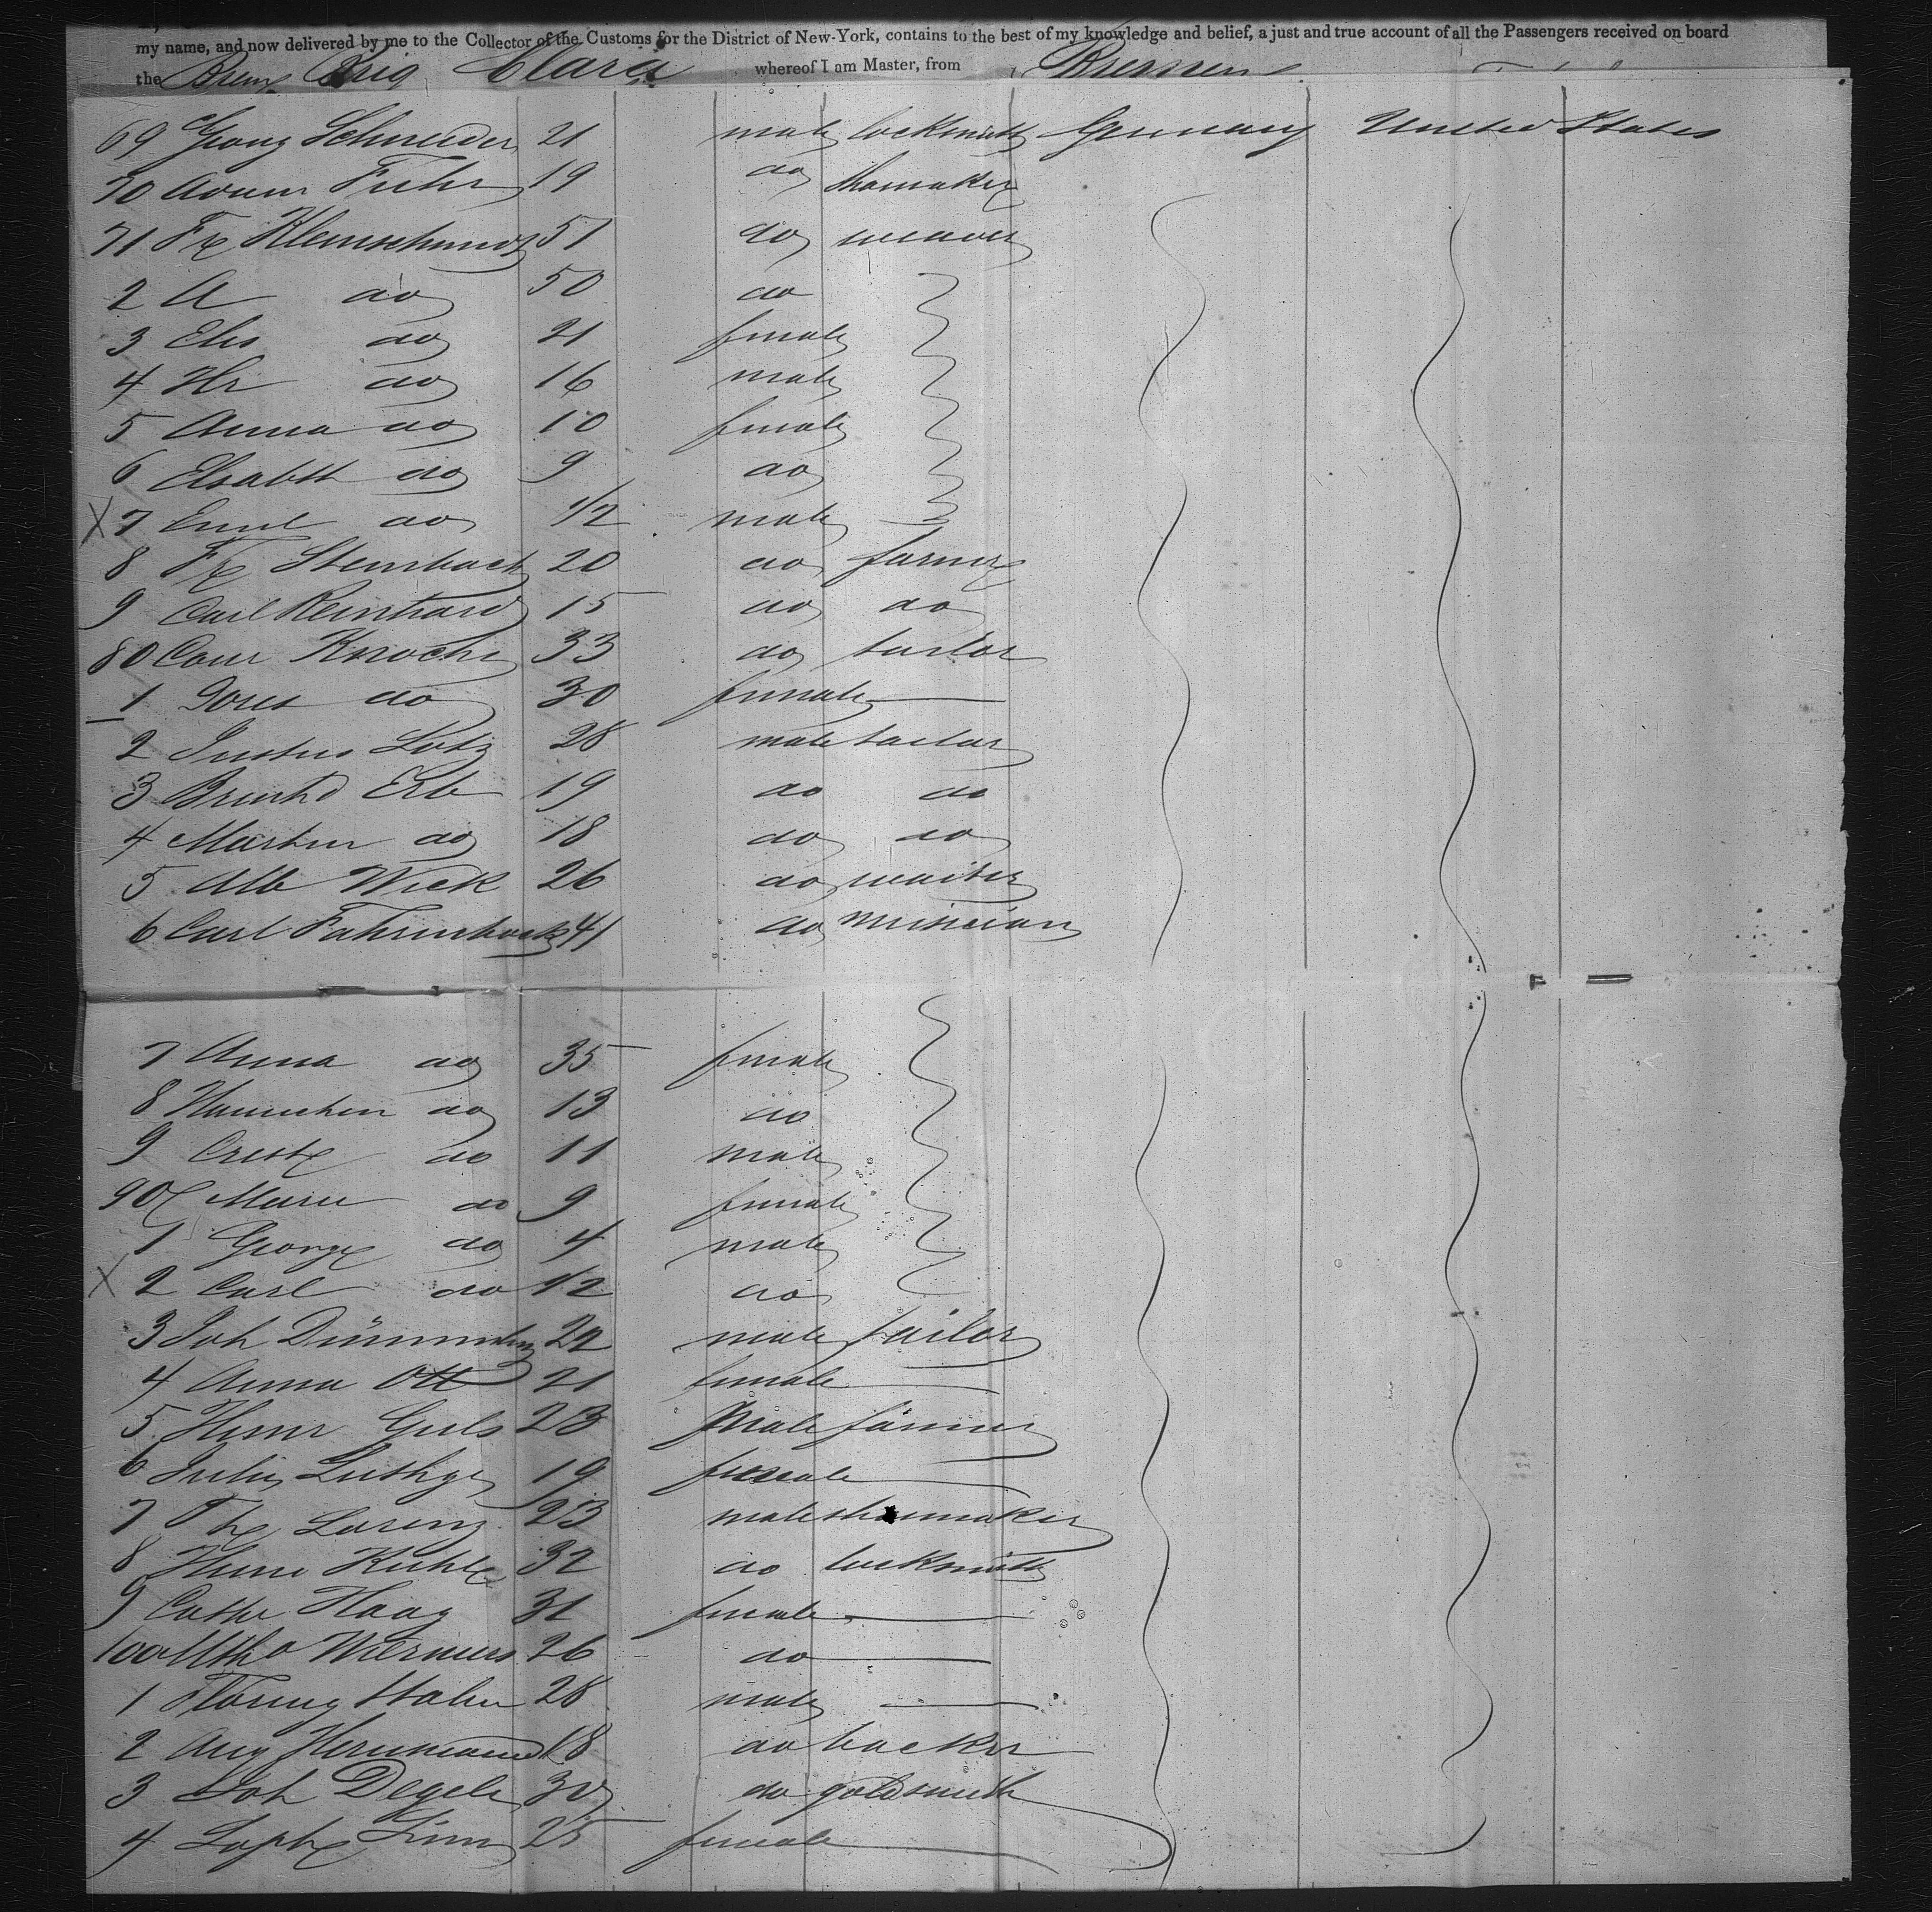 my name, and now delivered by me to the Collector of the Customs for the District of New-York, contains to the best of my knowledge and belief, a just and true account of all the Passengers received on board
the Brem. Brig Clara whereof I am Master, from Bremen
69 Georg Schneider 21 male locksmith Germany United States
70 Adam Fuhr 19 do shomaker
71 Fr Kleinschmidt 51 do weaver
2 A do 50 do
3 Elis do 21 female
4 Hr do 16 male
5 Anna do 10 female
6 Elsabth do 9 do
X 7 Emil do 1/2 male
8 Fr Steinbach 20 do farmer
9 Carl Reinhard 15 do do
80 Conr Knoche 33 do tailor
1 do 30 female
2 Justus Lotz 28 male tailor
3 Brnhd Erb 19 do do
4 Martin do 18 do do
5 Alb Wick 26 do waiter
6 Carl Fahrenbach 41 do musician
7 Anna do 35 female
8 Hannchen do 13 do
9 do 11 male
90 Marie do 9 female
1 George do 4 male
X 2 Carl do 1/2 do
3 Joh 29 male tailor
4 Anna Ott 21 female
5 23 male farmer
6 19 female
7 Lorenz 23 male shomaker
8 32 do locksmith
9 Cathe Haag 31 female
100 Mtha 26 do
1 28 male
2 Aug Herrmann 18 do backer
3 Joh Degele 30 do goldsmith
4 Soph 25 female